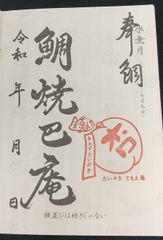 奉鯛
水無月
鯛焼巴庵
令和 年 月 日
たいやき ともえ庵
横並びは好きじゃない